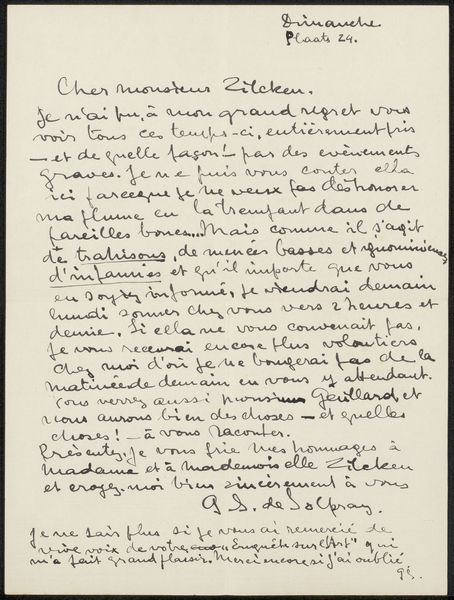 Dimanche
Plaats 24.
Cher monsieur Zilcken.
Je n'ai pu, à mon grand regret vous
voir tous ces temps-ci, entièrement pris
— et de quelle façon! — par des évènements
graves. Je ne puis vous conter cela
ici parceque je ne veux pas déshonorer
ma plume en la trempant dans de
pareilles boues... Mais comme il s'agit
de trahisons, de menées basses et ignominieuses
d'infamies et qu'il importe que vous
en soyez informé, je viendrai demain
lundi sonner chez vous vers 2 heures et
demie. Si cela ne vous convenait pas,
je vous recevrai encore plus volontiers
chez moi d'où je ne bougerai pas de la
matinée de demain en vous y attendant.
Vous verrez aussi monsieur Gaillard, et
nous aurons bien des choses — et quelles
choses! — à vous raconter.
Présentez, je vous prie mes hommages à
madame et à mademoiselle Zilcken
et croyez-moi bien sincèrement à vous
G S. de Solpray.
Je ne sais plus si je vous ai remercié de
vive voix de votre "Enquête sur l'Art" qui
m'a fait grand plaisir. Merci encore si j'ai oublié